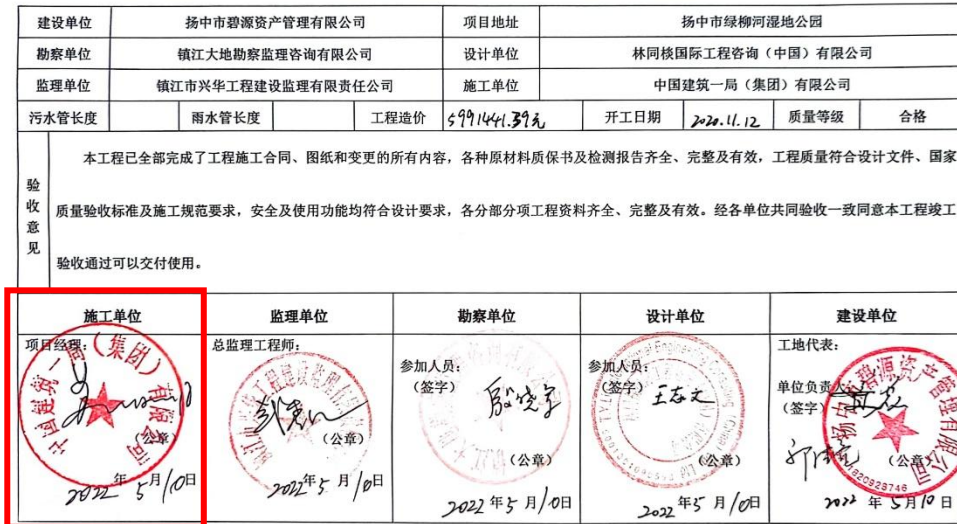 建设单位 扬中市碧源资产管理有限公司 项目地址 扬中市绿柳河湿地公园
勘察单位 镇江大地勘察监理咨询有限公司 设计单位 林同棪国际工程咨询(中国)有限公司
监理单位 镇江市兴华工程建设监理有限责任公司 施工单位 中国建筑一局(集团)有限公司
污水管长度 雨水管长度 工程造价 5991441.39元 开工日期 2020.11.12 质量等级 合格
验收意见
本工程已全部完成了工程施工合同、图纸和变更的所有内容,各种原材料质保书及检测报告齐全、完整及有效,工程质量符合设计文件、国家
质量验收标准及施工规范要求,安全及使用功能均符合设计要求,各分部分项工程资料齐全、完整及有效。经各单位共同验收一致同意本工程竣工
验收通过可以交付使用。
施工单位 监理单位 勘察单位 设计单位 建设单位
项目经理: 总监理工程师: 参加人员: 参加人员: 工地代表:
(签字) (签字) 王志文 单位负责人:
(签字)
(公章) (公章) (公章) (公章) (公章)
2022年5月10日 2022年5月10日 2022年5月10日 2022年5月10日 2022年5月10日
中国建筑一局(集团)有限公司
扬中市碧源资产管理有限公司